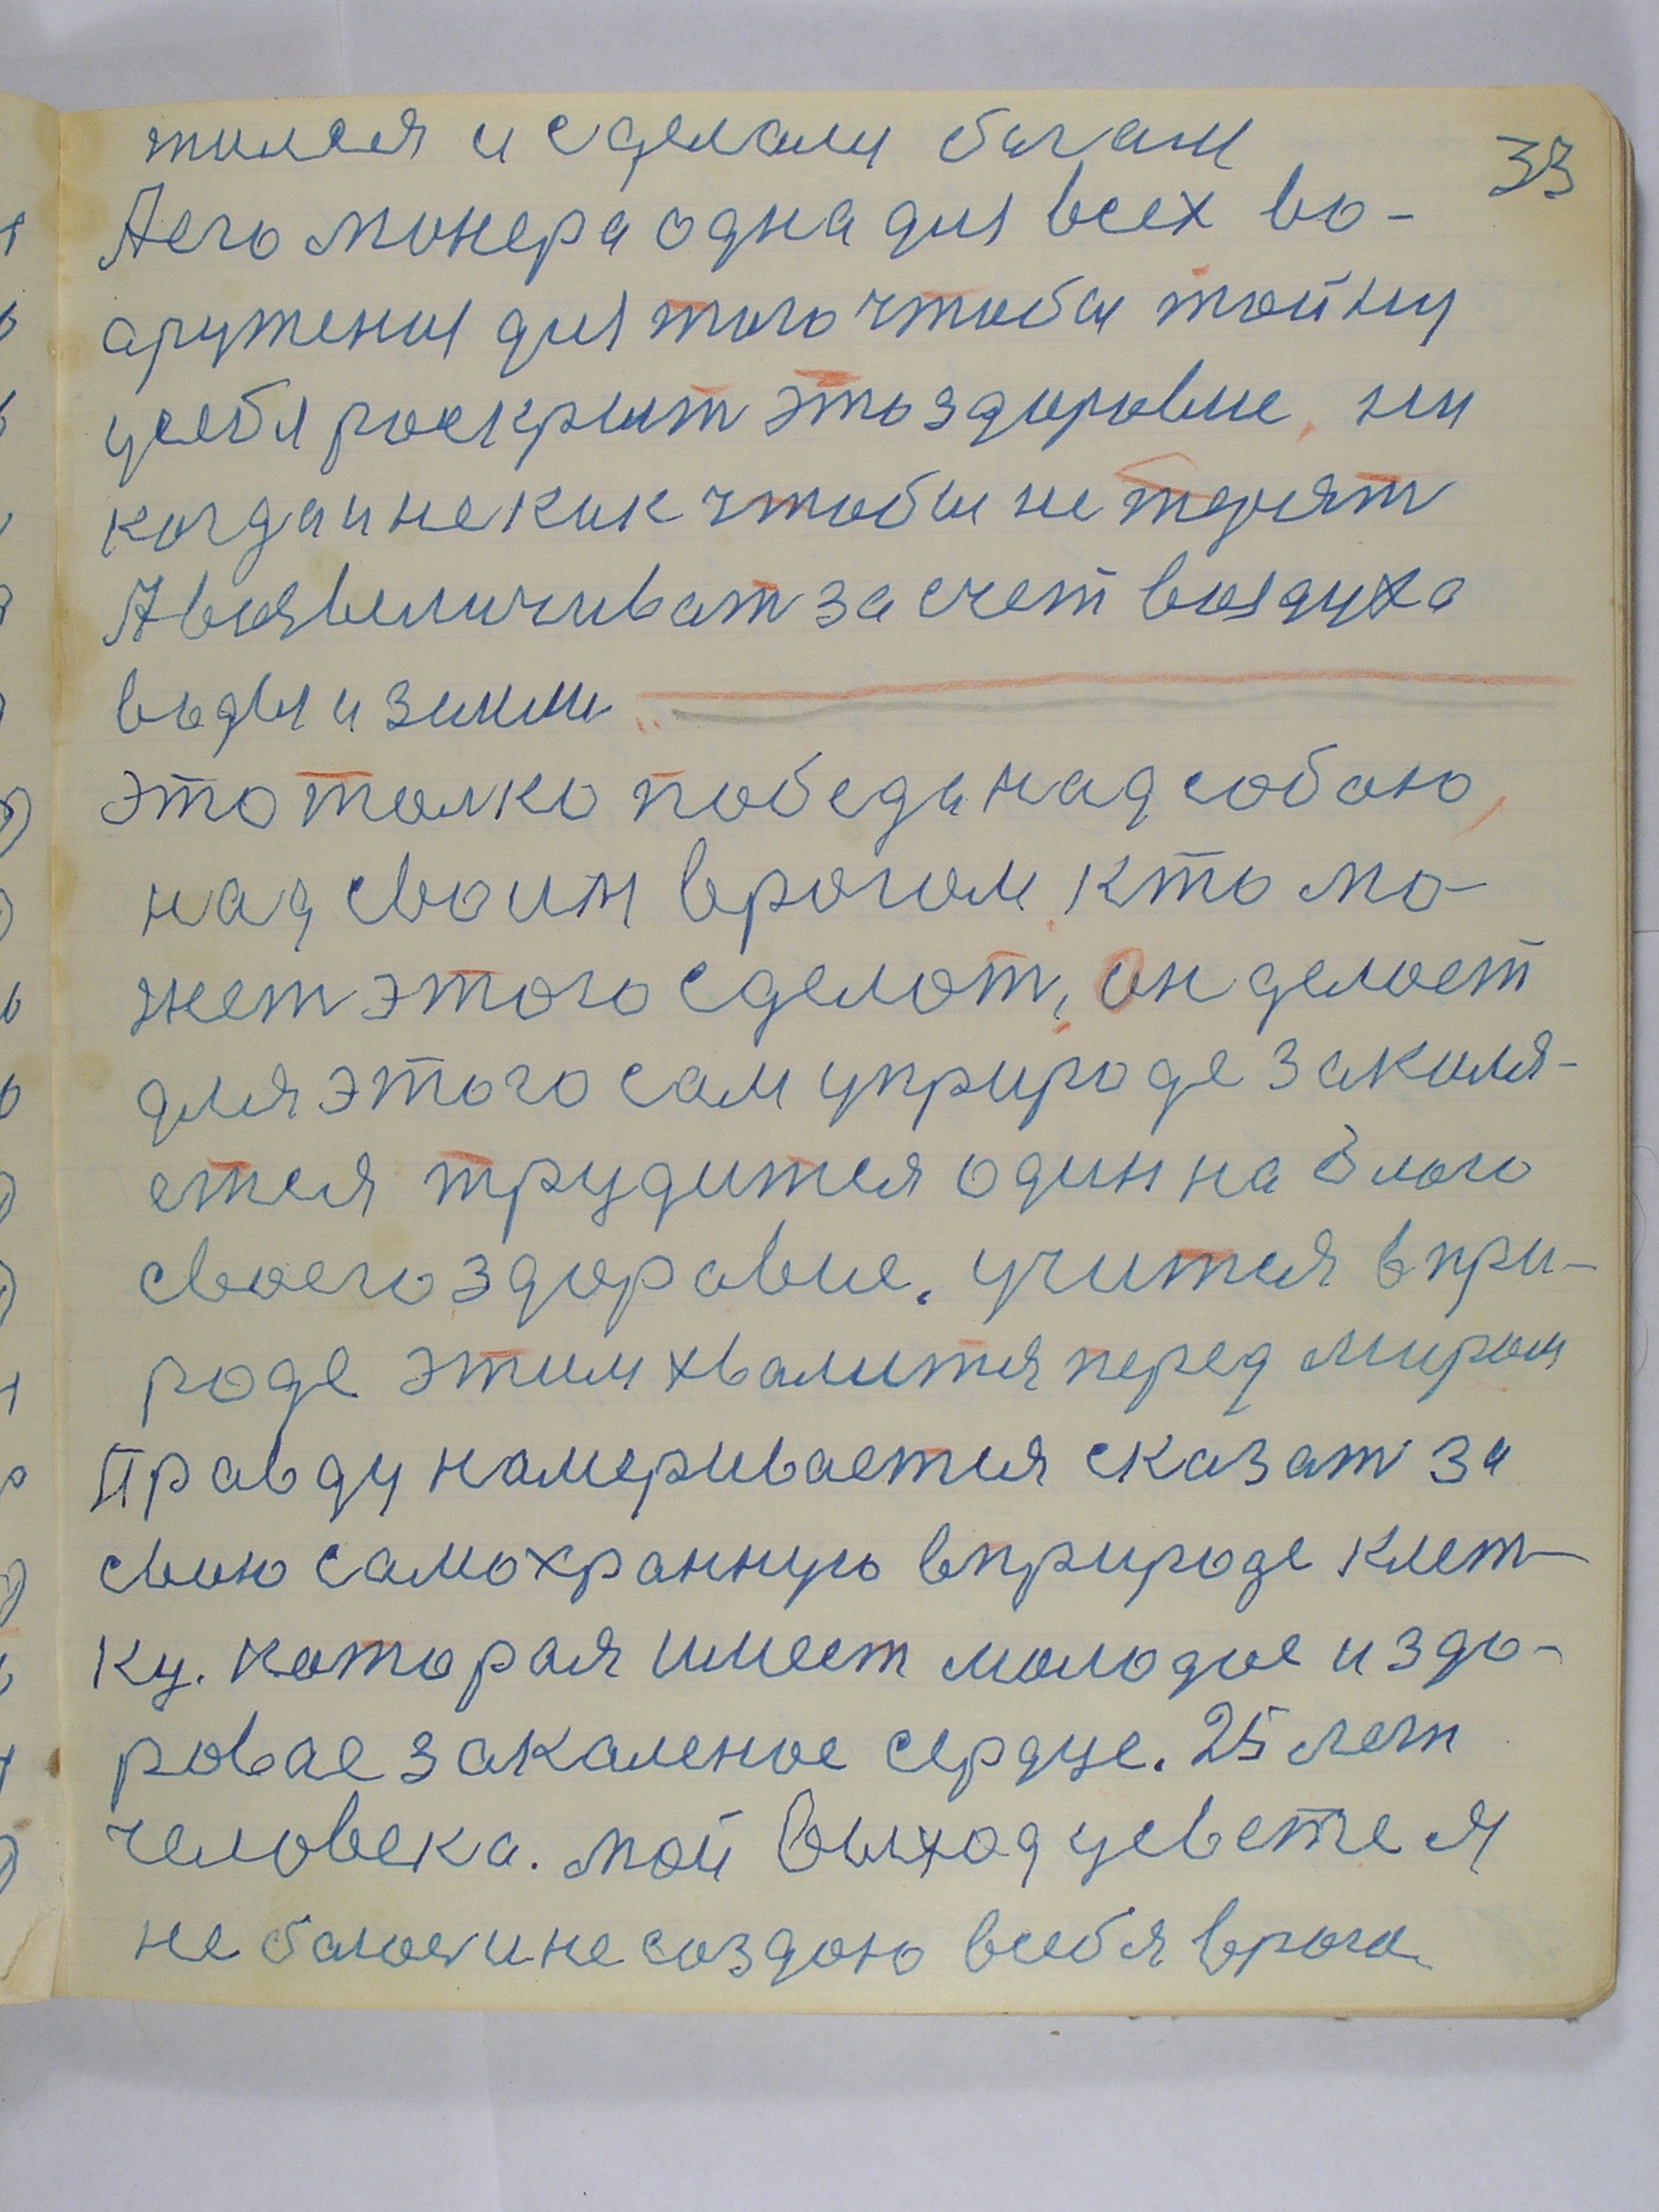 тилися и сделали багам 33
Аего монера одна для всех во-
аружения для того чтобы тайну
усебя роскрыт это здоровие, ни
когда и некик чтобы не терят
А возвеличиват за счет воздуха
воды и земли
это толко победа над собою,
над своим врогом, кто мо-
жет этого сделот, он делоет
для этого сам уприроде закаля-
ется трудится один на блого
своего здоровие. учится впри-
роде этим хвалится перед миром
Правду намеривается сказат за
свою самохранную вприроде клет-
ку. которая имеет молодое и здо-
ровае закаленое сердце. 25 лет
человека. мой выход усвете я
не боюси не создою всебя врога